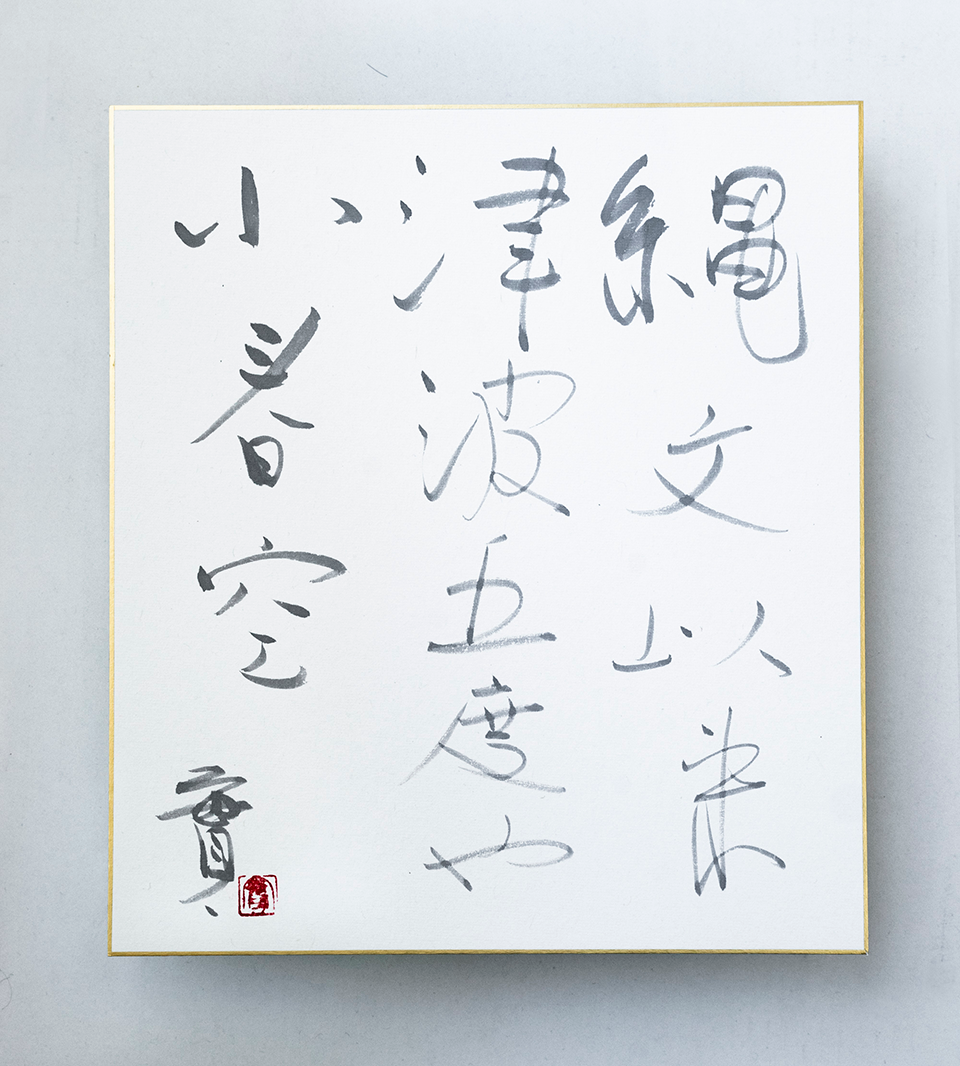 縄文以来
津波五度や
小春空
實